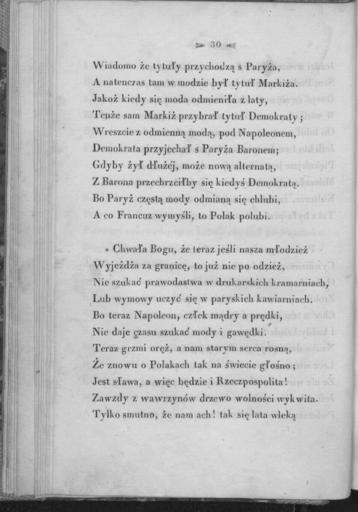 30
Wiadomo że tytuły przychodzą s Paryża,
A natenczas tam w modzie był tytuł Markiża.
Jakoż kiedy się moda odmieniła z laty,
Tenże sam Markiż przybrał tytuł Demokraty;
Wreszcie z odmienną modą, pod Napoleonem,
Demokrata przyjechał s Paryża Baronem;
Gdyby żył dłużéj, może nową alternatą,
Z Barona przechrzciłby się kiedyś Demokratą.
Bo Paryż częstą mody odmianą się chlubi,
A co Francuz wymyśli, to Polak polubi.
« Chwała Bogu, że teraz jeśli nasza młodzież
Wyjeżdża za granicę, to już nie po odzież,
Nie szukać prawodastwa w drukarskich kramarniach,
Lub wymowy uczyć się w paryskich kawiarniach.
Bo teraz Napoleon, człek mądry a prędki,
Nie daje czasu szukać mody i gawędki.
Teraz grzmi oręż, a nam starym serca rosną,
Że znowu o Polakach tak na świecie głośno;
Jest sława, a więc będzie i Rzeczpospolita!
Zawzdy z wawrzynów drzewo wolności wykwita.
Tylko smutno, że nam ach! tak się lata wleką